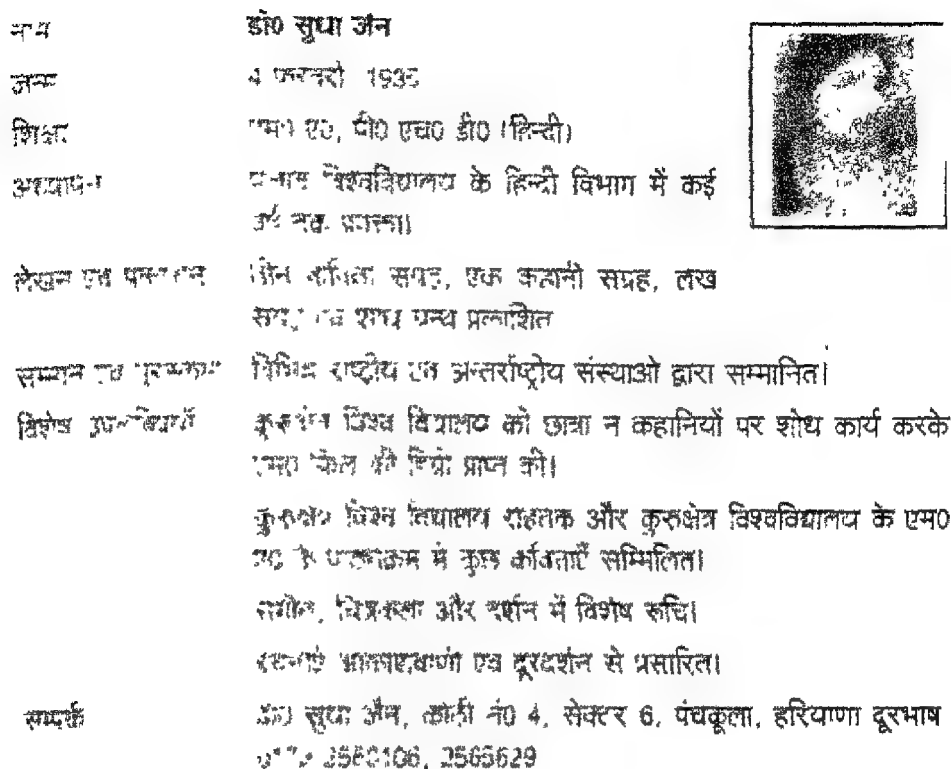 नाम डॉ0 सुधा जैन
जन्म 4 फरवरी 1935
शिक्षा एम0 ए0, पी0 एच0 डी0 (हिन्दी)
अध्यापन पंजाब विश्वविद्यालय के हिन्दी विभाग में कई
वर्ष तक प्राध्यापन।
लेखन एवं प्रकाशन तीन कविता संग्रह, एक कहानी सग्रह, लेख
संग्रह एवं शोध ग्रन्थ प्रकाशित
सम्मान एवं पुरस्कार विभिन्न राष्ट्रीय एवं अन्तर्राष्ट्रीय संस्थाओ द्वारा सम्मानित।
विशेष उपलब्धियाँ कुरुक्षेत्र विश्व विद्यालय की छात्रा न कहानियों पर शोध कार्य करके
एम0 फिल की डिग्री प्राप्त की।
कुरुक्षेत्र विश्व विद्यालय रोहतक और कुरुक्षेत्र विश्वविद्यालय के एम0
ए0 के पाठ्यक्रम में कुछ कविताएँ सम्मिलित।
संगीत, चित्रकला और दर्शन में विशेष रूचि।
रचनाएं आकाशवाणी एवं दूरदर्शन से प्रसारित।
सम्पर्क डॉ0 सुधा जैन, कोठी नं0 4, सेक्टर 6, पंचकूला, हरियाणा दूरभाष
2565629